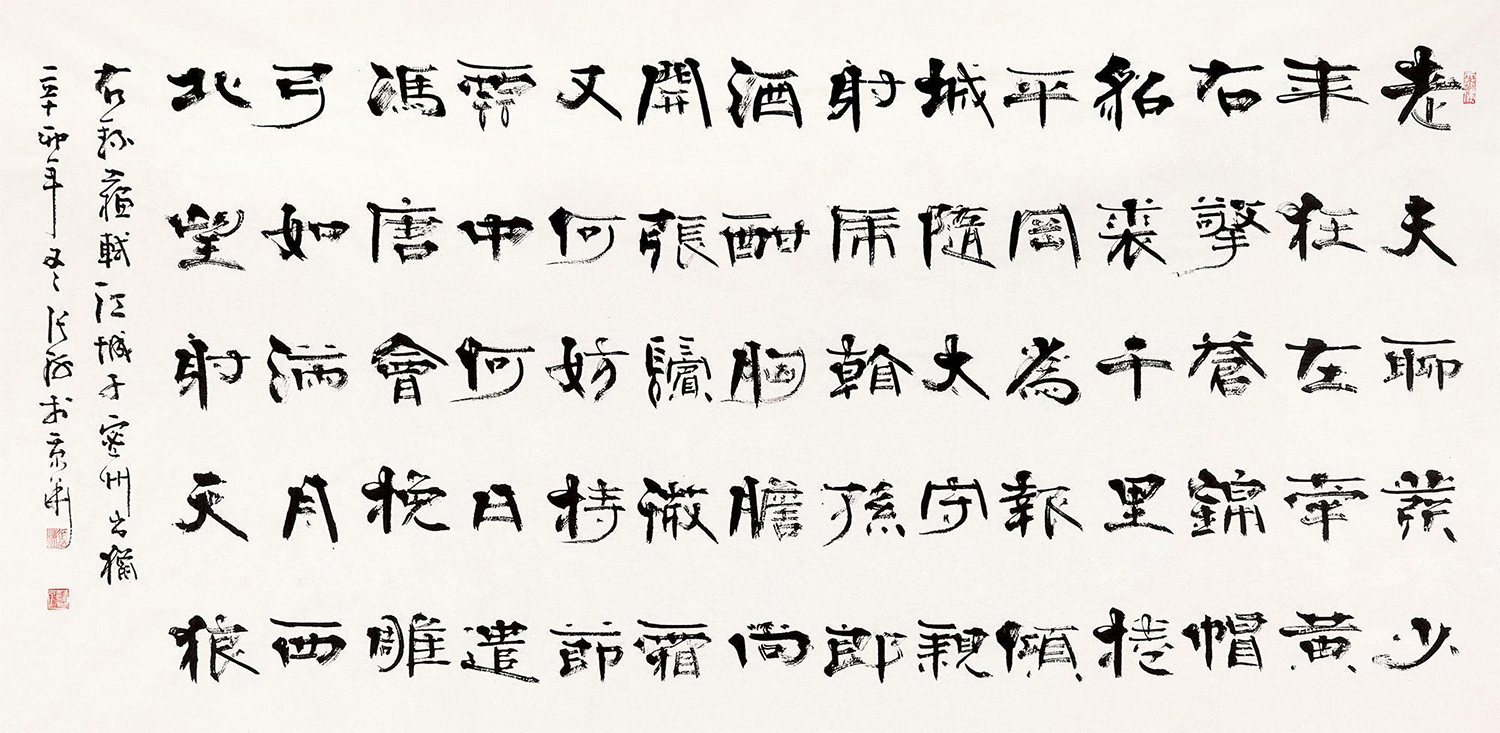 老夫聊發少
年狂左牽黃
右擎蒼錦帽
貂裘千里捲
平岡為報傾
城隨太守親
射虎看孫郎
酒酣胸膽尚
開張鬢微霜
又何妨持節
雲中何日遣
馮唐會挽雕
弓如滿月西
北望射天狼
右錄蘇軾江城子密州出獵
辛卯年冬張於京華